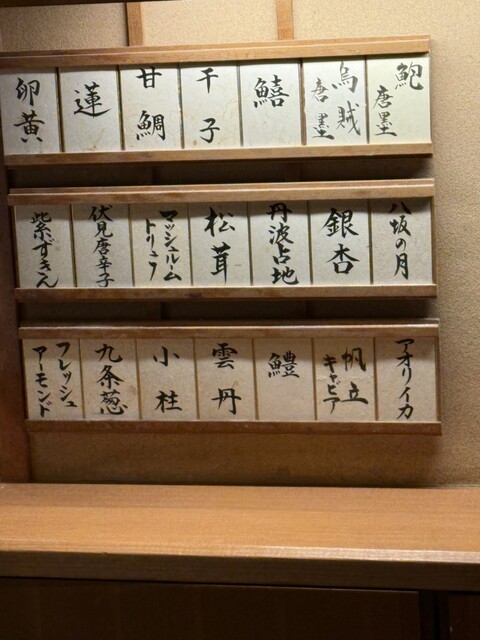 鮑
唐墨
烏賊
唐墨
鱚
干子
甘鯛
蓮
卵黄
八坂の月
銀杏
丹波占地
松茸
マッシュルーム
トリュフ
伏見唐辛子
紫ずきん
アオリイカ
帆立
キャビア
鱧
雲丹
小柱
九条葱
フレッシュ
アーモンド